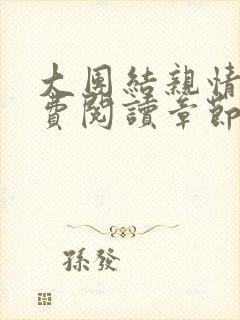 大團結親情
費閱讀章節
孫發